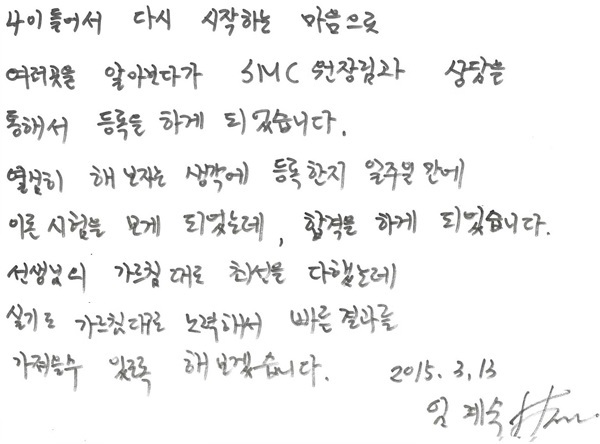 나이들어서 다시 시작하는 마음으로
여러곳을 알아보다가 SMC 원장님과 상담을
통해서 등록을 하게 되었습니다.
열심히 해 보자는 생각에 등록한지 일주일 만에
이론 시험을 보게 되었는데, 합격을 하게 되었습니다.
선생님의 가르침대로 최선을 다했는데
실기도 가르침대로 노력해서 빠른 결과를
가져올수 있도록 해 보겠습니다.
2015. 3. 13
임 계숙